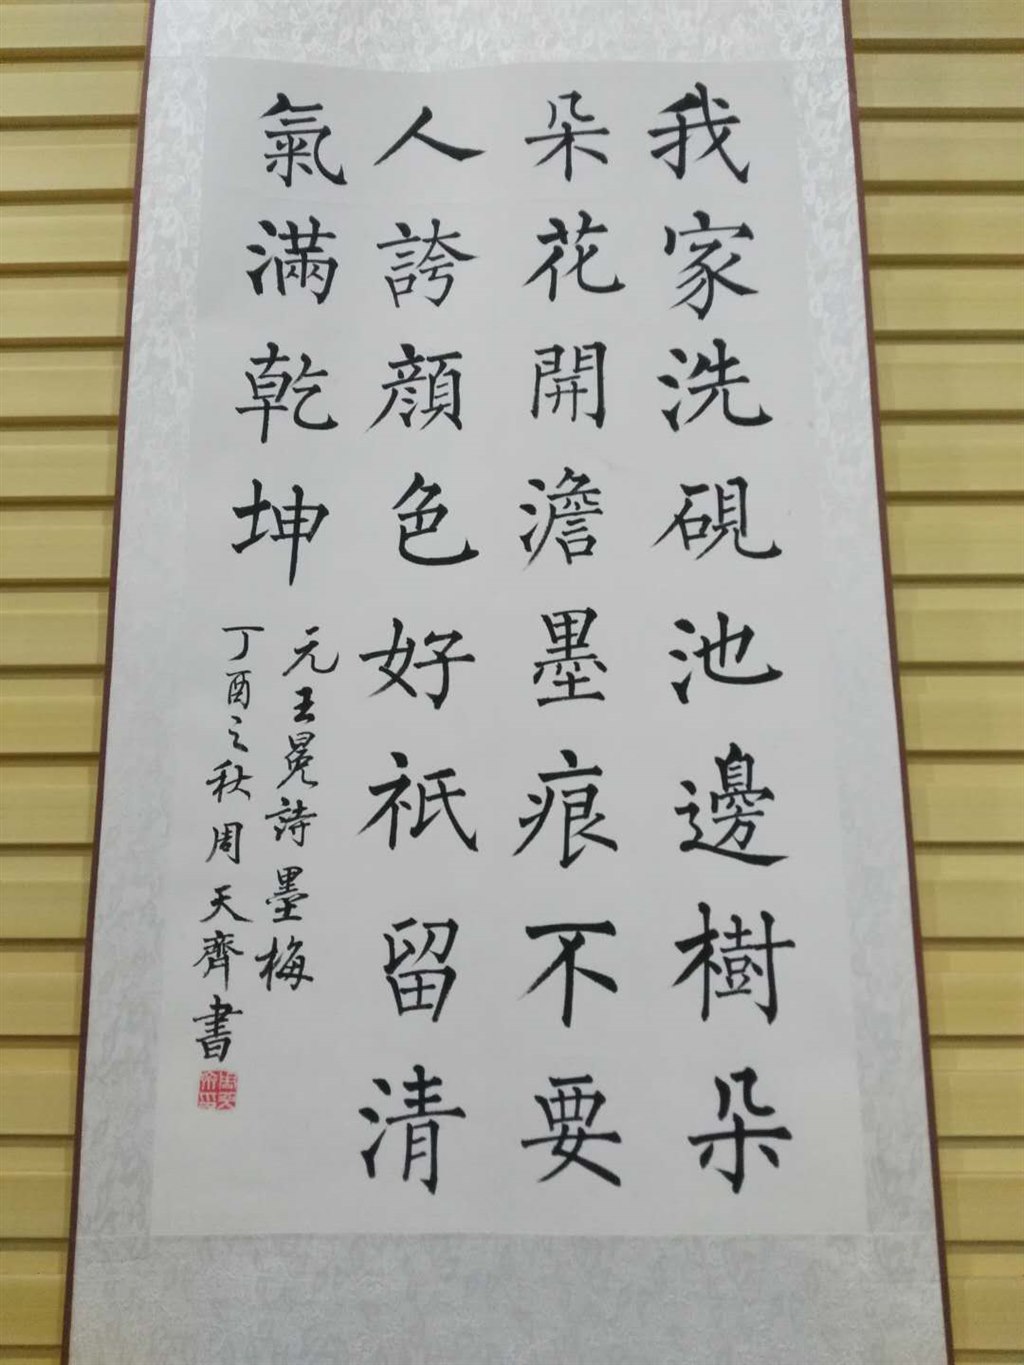 我家洗硯池邊樹朵
朵花開澹墨痕不要
人誇顔色好祇留清
氣滿乾坤
元王冕詩墨梅
丁酉之秋周天齊書